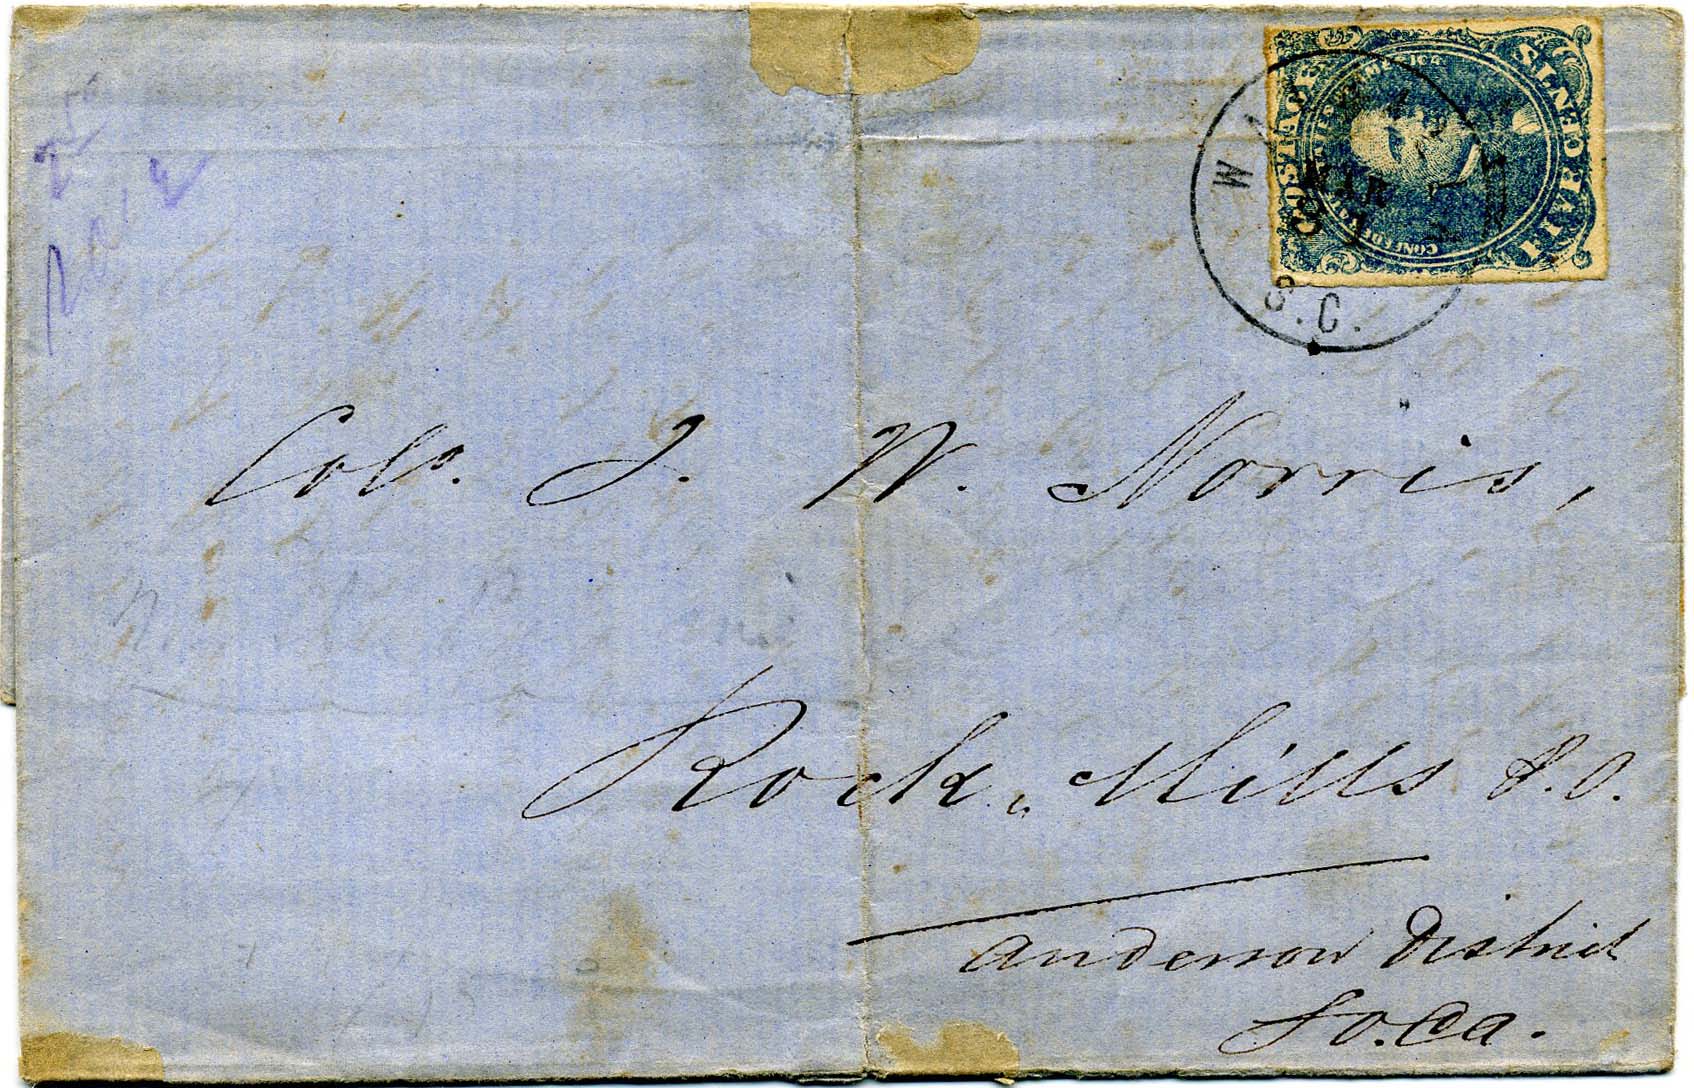 POSTAGE
CONFEDERATE STATES OF AMERICA
FIVE CENTS
W
MAR
S.C.
Col. J. W. Norris,
Rock Mills P.O.
Anderson District
So. Ca.